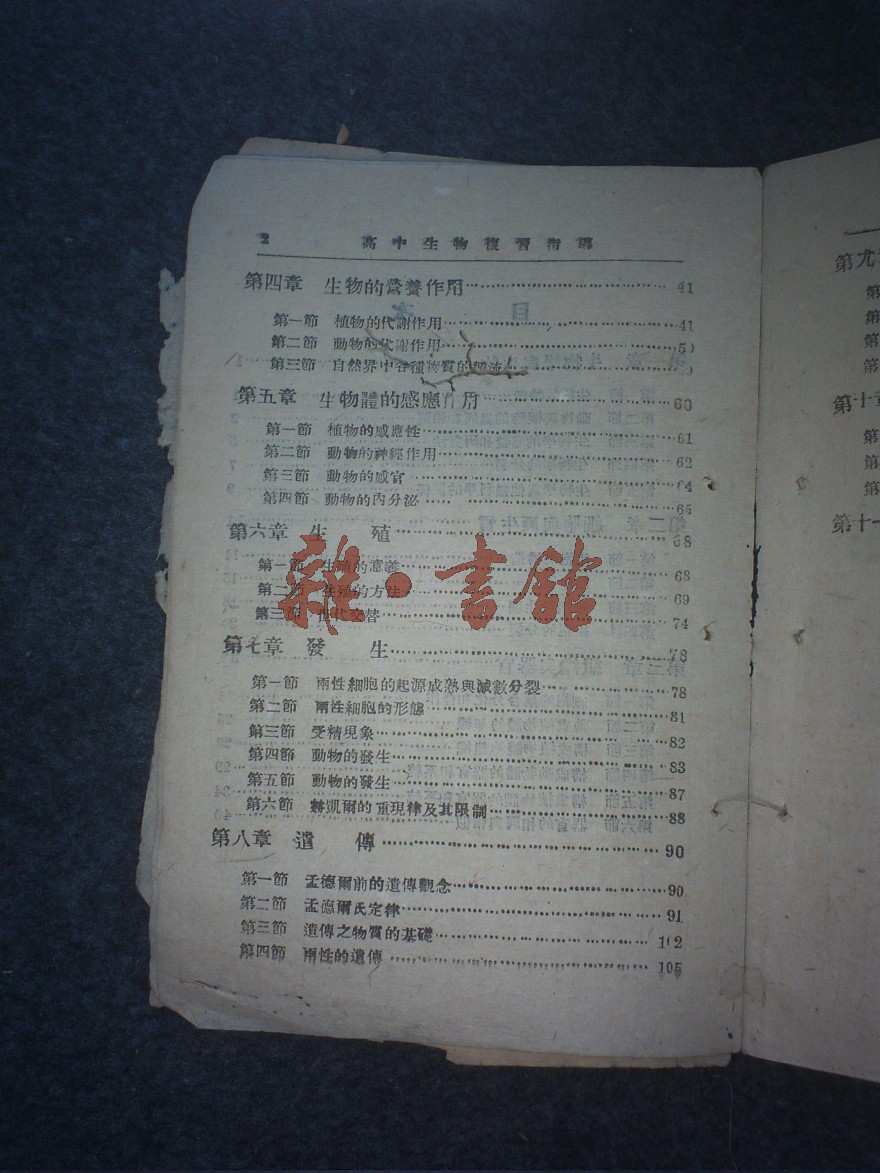 2 高中生物複習指導
第四章 生物的營養作用 41
第一節 植物的代謝作用 41
第二節 動物的代謝作用 50
第三節 自然界中各種物質的
第五章 生物體的感應作用 60
第一節 植物的感應性 61
第二節 動物的神經作用 62
第三節 動物的感官 64
第四節 動物的內分泌 65
第六章 生殖 68
第一節 生殖的意義 68
第二節 生殖的方法 69
第三節 世代交替 74
第七章 發生 78
第一節 兩性細胞的起源成熟與減數分裂 78
第二節 兩性細胞的形態 81
第三節 受精現象 82
第四節 動物的發生 83
第五節 動物的發生 87
第六節 赫凱爾的重現律及其限制 88
第八章 遺傳 90
第一節 孟德爾前的遺傳觀念 90
第二節 孟德爾氏定律 91
第三節 遺傳之物質的基礎 102
第四節 兩性的遺傳 105
雜·書館
第九
第
第
第
第
第十章
第
第
第
第十一